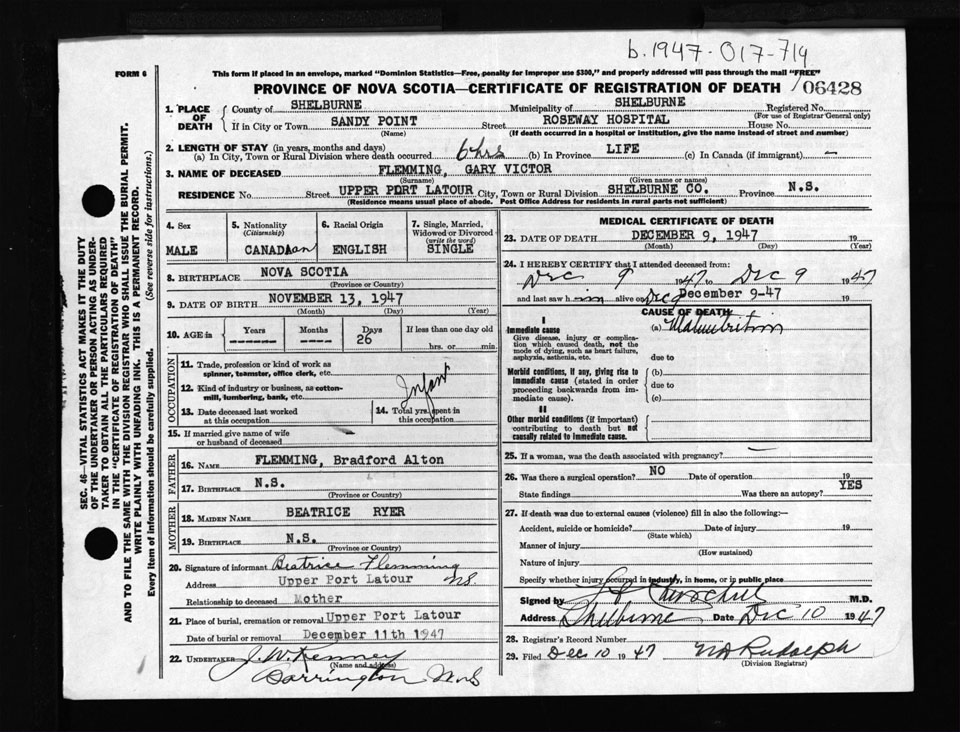 b.1947-017-714
FORM 6
This form if placed in an envelope, marked "Dominion Statistics—Free, penalty for improper use $300," and properly addressed will pass through the mail "FREE"
PROVINCE OF NOVA SCOTIA—CERTIFICATE OF REGISTRATION OF DEATH 06428
1. PLACE OF DEATH
County of SHELBURNE Municipality of SHELBURNE Registered No.
(For use of Registrar General only)
If in City or Town SANDY POINT Street ROSEWAY HOSPITAL House No.
(Name) (If death occurred in a hospital or institution, give the name instead of street and number)
2. LENGTH OF STAY (in years, months and days)
(a) In City, Town or Rural Division where death occurred 6 hrs (b) In Province LIFE (c) In Canada (if immigrant) —
3. NAME OF DECEASED FLEMMING, GARY VICTOR
(Surname) (Given name or names)
RESIDENCE No. Street UPPER PORT LATOUR City, Town or Rural Division SHELBURNE CO. Province N.S.
(Residence means usual place of abode. Post Office Address for residents in rural parts not sufficient)
4. Sex
MALE
5. Nationality
(Citizenship)
CANADian
6. Racial Origin
ENGLISH
7. Single, Married, Widowed or Divorced
(write the word)
SINGLE
8. BIRTHPLACE NOVA SCOTIA
(Province or Country)
9. DATE OF BIRTH NOVEMBER 13, 1947
(Month) (Day) (Year)
10. AGE in Years Months Days If less than one day old
----- ---- 26 hrs. or min.
OCCUPATION
11. Trade, profession or kind of work as
spinner, teamster, office clerk, etc.
12. Kind of industry or business, as cotton-
mill, lumbering, bank, etc.
Infant
13. Date deceased last worked
at this occupation
14. Total yrs. spent in
this occupation
15. If married give name of wife
or husband of deceased
FATHER
16. NAME FLEMMING, Bradford Alton
17. BIRTHPLACE N.S.
(Province or Country)
MOTHER
18. MAIDEN NAME BEATRICE RYER
19. BIRTHPLACE N.S.
(Province or Country)
20. Signature of informant Beatrice Flemming
Address Upper Port Latour NS.
Relationship to deceased Mother
21. Place of burial, cremation or removal Upper Port Latour
Date of burial or removal December 11th 1947
22. UNDERTAKER J. W. Kenney
(Name and address)
Barrington
MEDICAL CERTIFICATE OF DEATH
23. DATE OF DEATH DECEMBER 9, 1947 19
(Month) (Day) (Year)
24. I HEREBY CERTIFY that I attended deceased from:
Dec 9 1947 to Dec 9 1947
and last saw him alive on Dec 9 December 9-47 19
CAUSE OF DEATH
I
Immediate cause (a) Malnutrition
Give disease, injury or complica-
tion which caused death, not the
mode of dying, such as heart failure,
asphyxia, asthenia, etc. due to
Morbid conditions, if any, giving rise to (b)
immediate cause (stated in order due to
proceeding backwards from im-
mediate cause). (c)
II
Other morbid conditions (if important)
contributing to death but not
causally related to immediate cause.
25. If a woman, was the death associated with pregnancy? —
26. Was there a surgical operation? NO Date of operation 19
State findings Was there an autopsy? YES
27. If death was due to external causes (violence) fill in also the following:—
Accident, suicide or homicide? Date of injury 19
(State which)
Manner of injury
(How sustained)
Nature of injury
Specify whether injury occurred in industry, in home, or in public place
Signed by M.D.
Address Shelburne Date Dec 10 1947
28. Registrar's Record Number
29. Filed Dec 10 1947 Rudolph
(Division Registrar)
SEC. 46—VITAL STATISTICS ACT MAKES IT THE DUTY
OF THE UNDERTAKER OR PERSON ACTING AS UNDER-
TAKER TO OBTAIN ALL THE PARTICULARS REQUIRED
IN THE "CERTIFICATE OF REGISTRATION OF DEATH"
AND TO FILE THE SAME WITH THE DIVISION REGISTRAR WHO SHALL ISSUE THE BURIAL PERMIT.
WRITE PLAINLY WITH UNFADING INK. THIS IS A PERMANENT RECORD.
Every item of information should be carefully supplied. (See reverse side for instructions.)